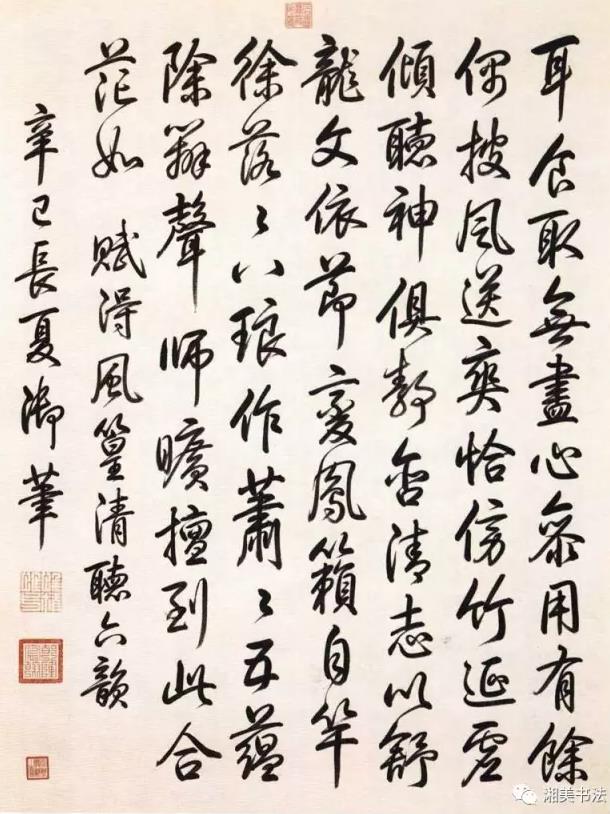 耳食取無盡心參用有餘
偶披風送爽恰傍竹延虛
傾聽神俱靜含清志以舒
龍文依節變鳳籟自竿
徐落〻八琅作蕭〻五蘊
除辨聲師曠擅到此合
茫如 賦得風篁清聽六韻
辛巳長夏御筆
湘美书法